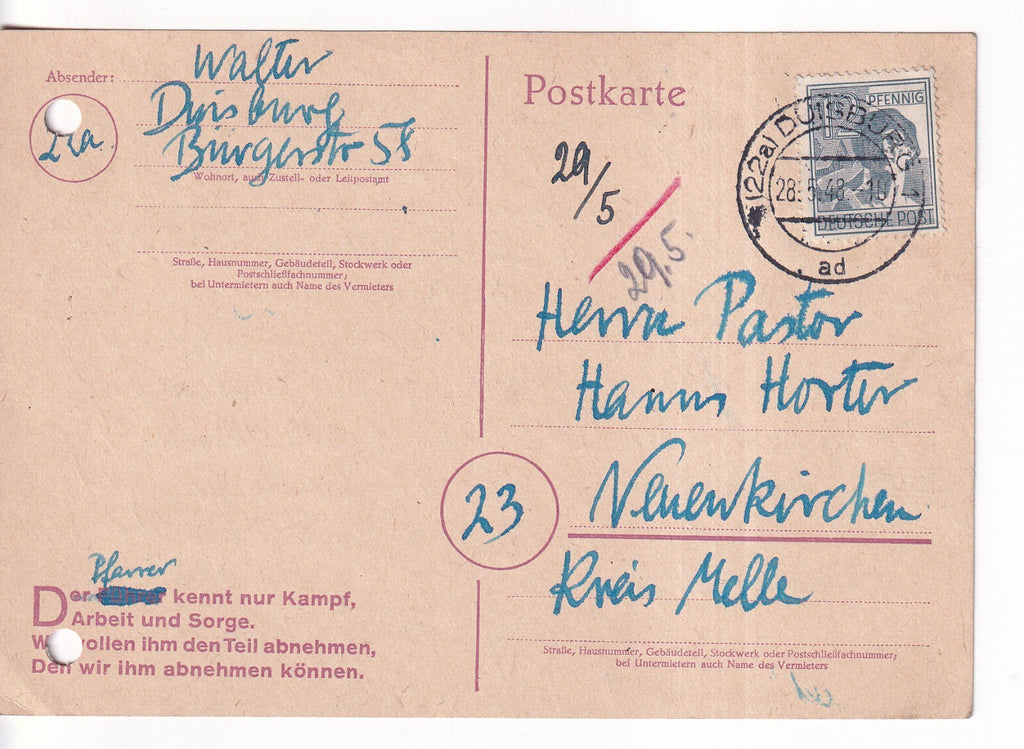 Absender: Walter
Duisburg
22a
Bürgerstr 58
Wohnort, auch Zustell- oder Leitpostamt
Straße, Hausnummer, Gebäudeteil, Stockwerk oder
Postschließfachnummer;
bei Untermietern auch Name des Vermieters
Postkarte
12 PFENNIG
DEUTSCHE POST
(22a) DUISBURG 1
28.5.48-10
ad
29/5
29.5.
Herrn Pastor
Hanns Horter
23
Neuenkirchen
Kreis Melle
Straße, Hausnummer, Gebäudeteil, Stockwerk oder Postschließfachnummer;
bei Untermietern auch Name des Vermieters
Pfarrer
Der kennt nur Kampf,
Arbeit und Sorge.
W vollen ihm den Teil abnehmen,
Den wir ihm abnehmen können.